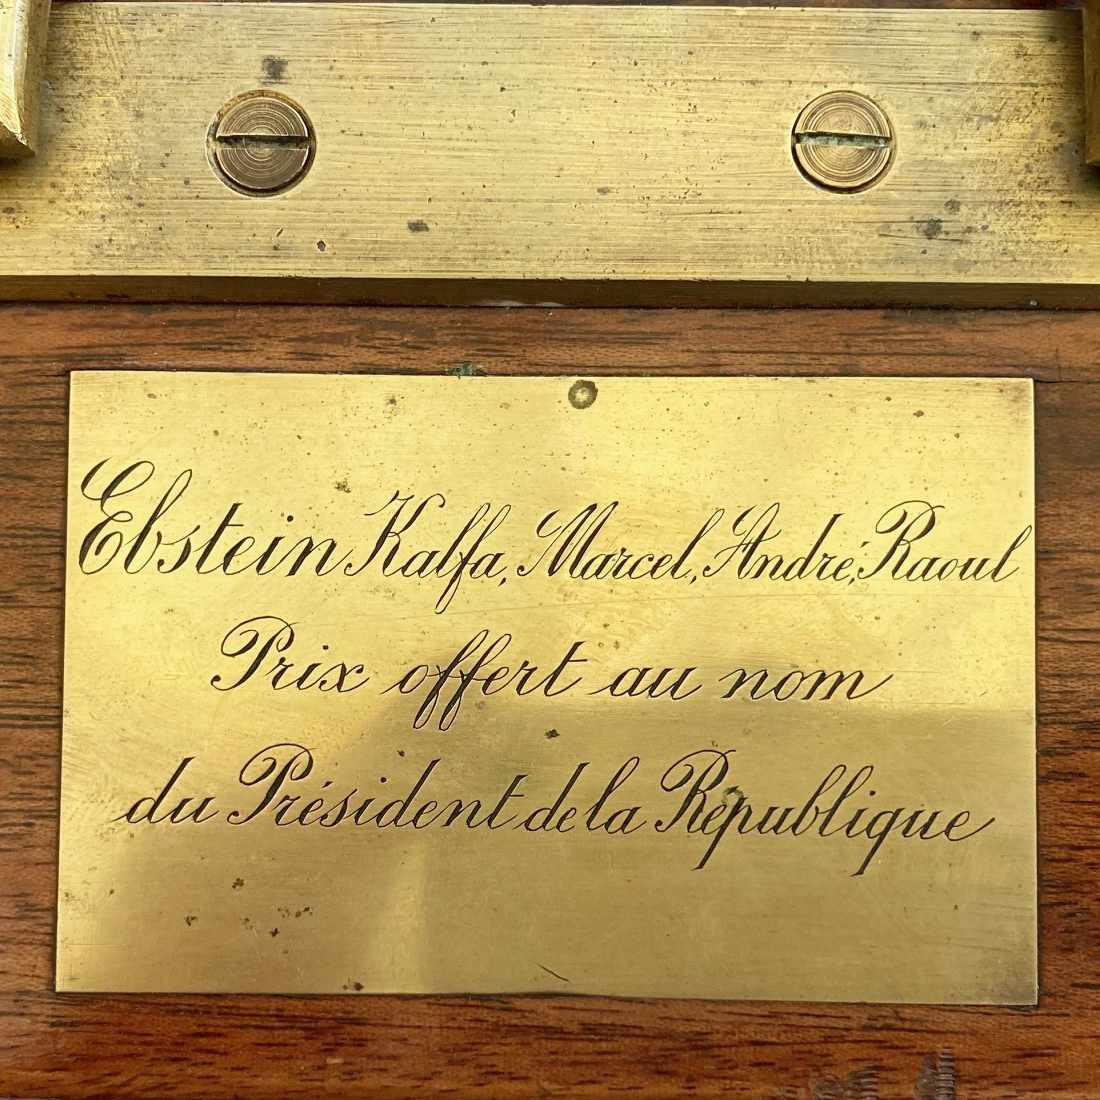 Ebstein Kalfa, Marcel, André, Raoul
Prix offert au nom
du Président de la République